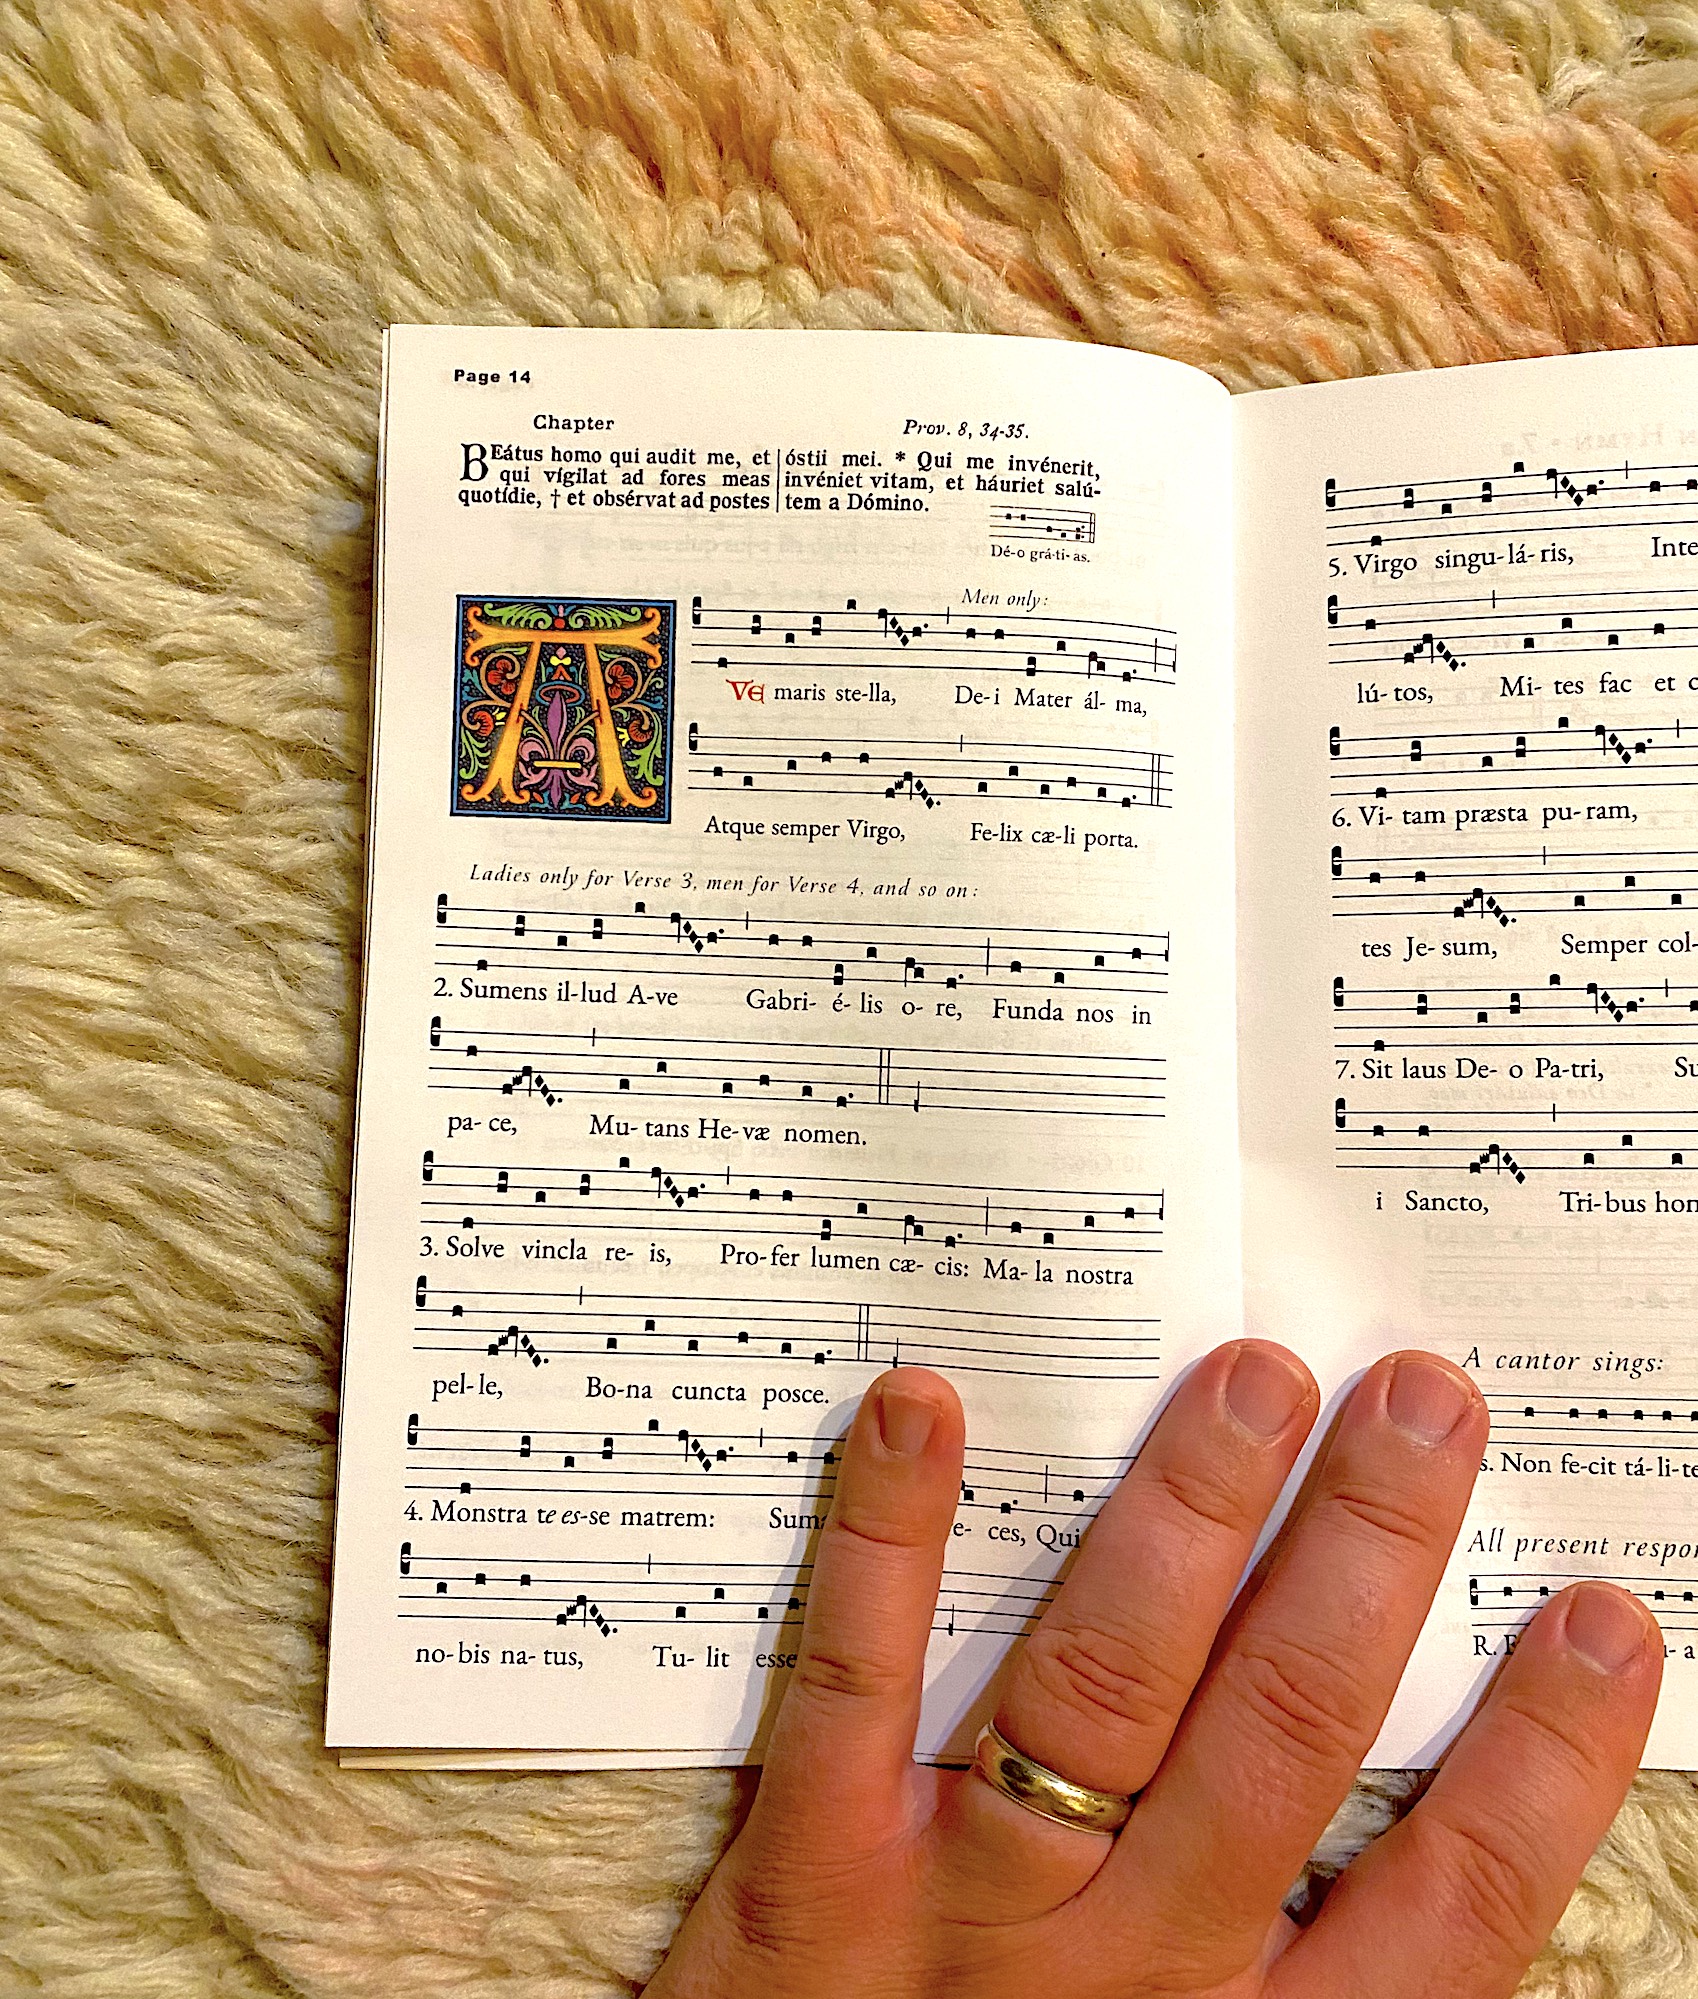 Page 14
Chapter Prov. 8, 34-35.
BEátus homo qui audit me, et
qui vígilat ad fores meas
quotídie, † et obsérvat ad postes
óstii mei. * Qui me invénerit,
invéniet vitam, et háuriet salú-
tem a Dómino.
Dé-o grá-ti-as.
Men only:
AVE maris ste-lla, De-i Mater ál- ma,
Atque semper Virgo, Fe-lix cæ-li porta.
Ladies only for Verse 3, men for Verse 4, and so on:
2. Sumens il-lud A-ve Gabri- é- lis o- re, Funda nos in
pa- ce, Mu- tans He-væ nomen.
3. Solve vincla re- is, Pro-fer lumen cæ- cis: Ma- la nostra
pel- le, Bo-na cuncta posce.
4. Monstra te es-se matrem: ces, Qui
no-bis na- tus, Tu- lit esse
5. Virgo singu-lá- ris,
lú- tos, Mi- tes fac et
6. Vi- tam præsta pu- ram,
tes Je- sum, Semper col-
7. Sit laus De- o Pa-tri,
i Sancto, Tri- bus
A cantor sings:
Non fe-cit tá-li-
All present
R.